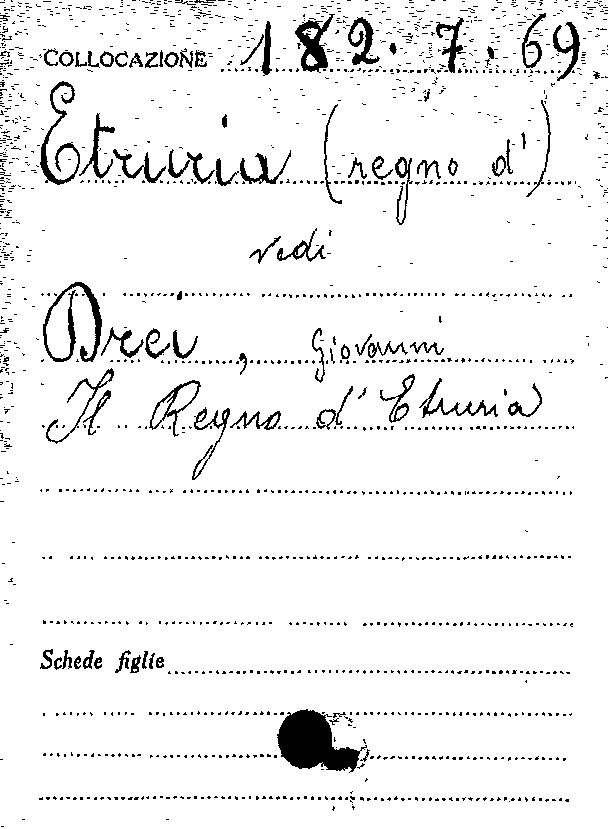 COLLOCAZIONE 182.7.69
Etruria (regno d')
vedi
Drei, Giovanni
Il Regno d'Etruria
Schede figlie